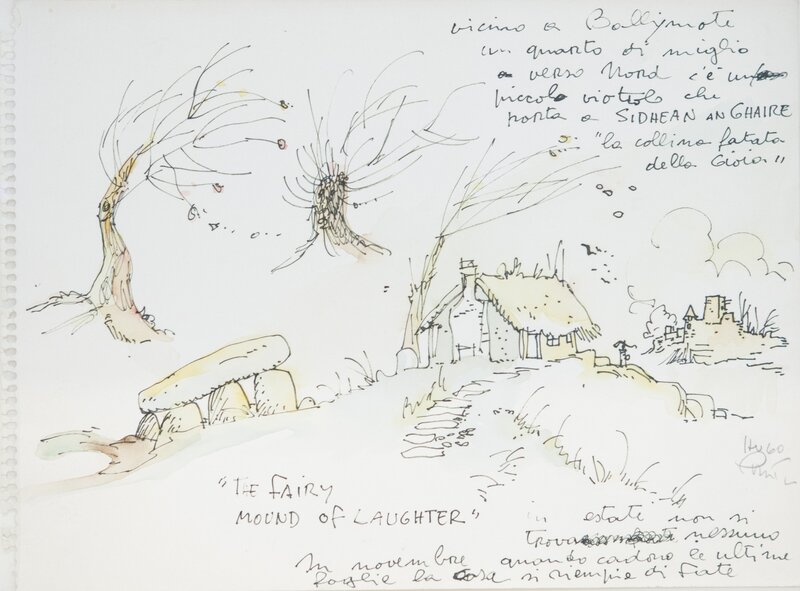 vicino a Ballymote
un quarto di miglio
verso Nord c'è un
piccolo viottolo che
porta a SIDHEAN AN GHAIRE
"la collina fatata
della Gioia"
HUGO
"THE FAIRY
MOUND OF LAUGHTER"
in estate non si
trova nessuno
In novembre quando cadono le ultime
foglie la casa si riempie di Fate